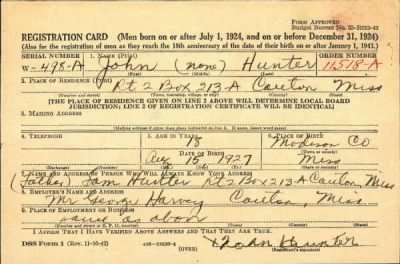 FORM APPROVED
REGISTRATION CARD (Men born on or after July 1, 1924, and on or before December 31, 1924)
(Also for the registration of men as they reach the 18th anniversary of the date of their birth on or after January 1, 1943.)
SERIAL NUMBER 1. NAME (Print) ORDER NUMBER
W-498-A John (none) Hunter 11518-A
(First) (Middle) (Last)
2. PLACE OF RESIDENCE (Print)
Rt 2 Box 213-A Canton Miss
(Number and street) (Town, township, village, or city) (County) (State)
[THE PLACE OF RESIDENCE GIVEN ON LINE 2 ABOVE WILL DETERMINE LOCAL BOARD
JURISDICTION; LINE 2 OF REGISTRATION CERTIFICATE WILL BE IDENTICAL]
3. MAILING ADDRESS
4. TELEPHONE 5. AGE IN YEARS 6. PLACE OF BIRTH
18 Madison Co
DATE OF BIRTH
Aug 15 1927 Miss
(Exchange) (Number) (Mo.) (Day) (Yr.) (State or country)
7. NAME AND ADDRESS OF PERSON WHO WILL ALWAYS KNOW YOUR ADDRESS
(Father) Sam Hunter Rt 2 Box 213 A Canton, Miss
8. EMPLOYER'S NAME AND ADDRESS
Mr. George Harvey Canton, Miss
9. PLACE OF EMPLOYMENT OR BUSINESS
same as above
I AFFIRM THAT I HAVE VERIFIED ABOVE ANSWERS AND THAT THEY ARE TRUE.
DSS Form 1 (Rev. 11-16-42) (OVER) x John Hunter